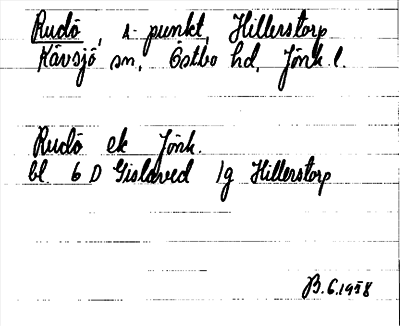 Rudö, s. punkt, Hillerstorp
Kävsjö sn, Östbo hd, Jönk. l.
Rudö ek Jönk.
bl 6 D Gislaved 1g Hillerstorp
B. 6.1958